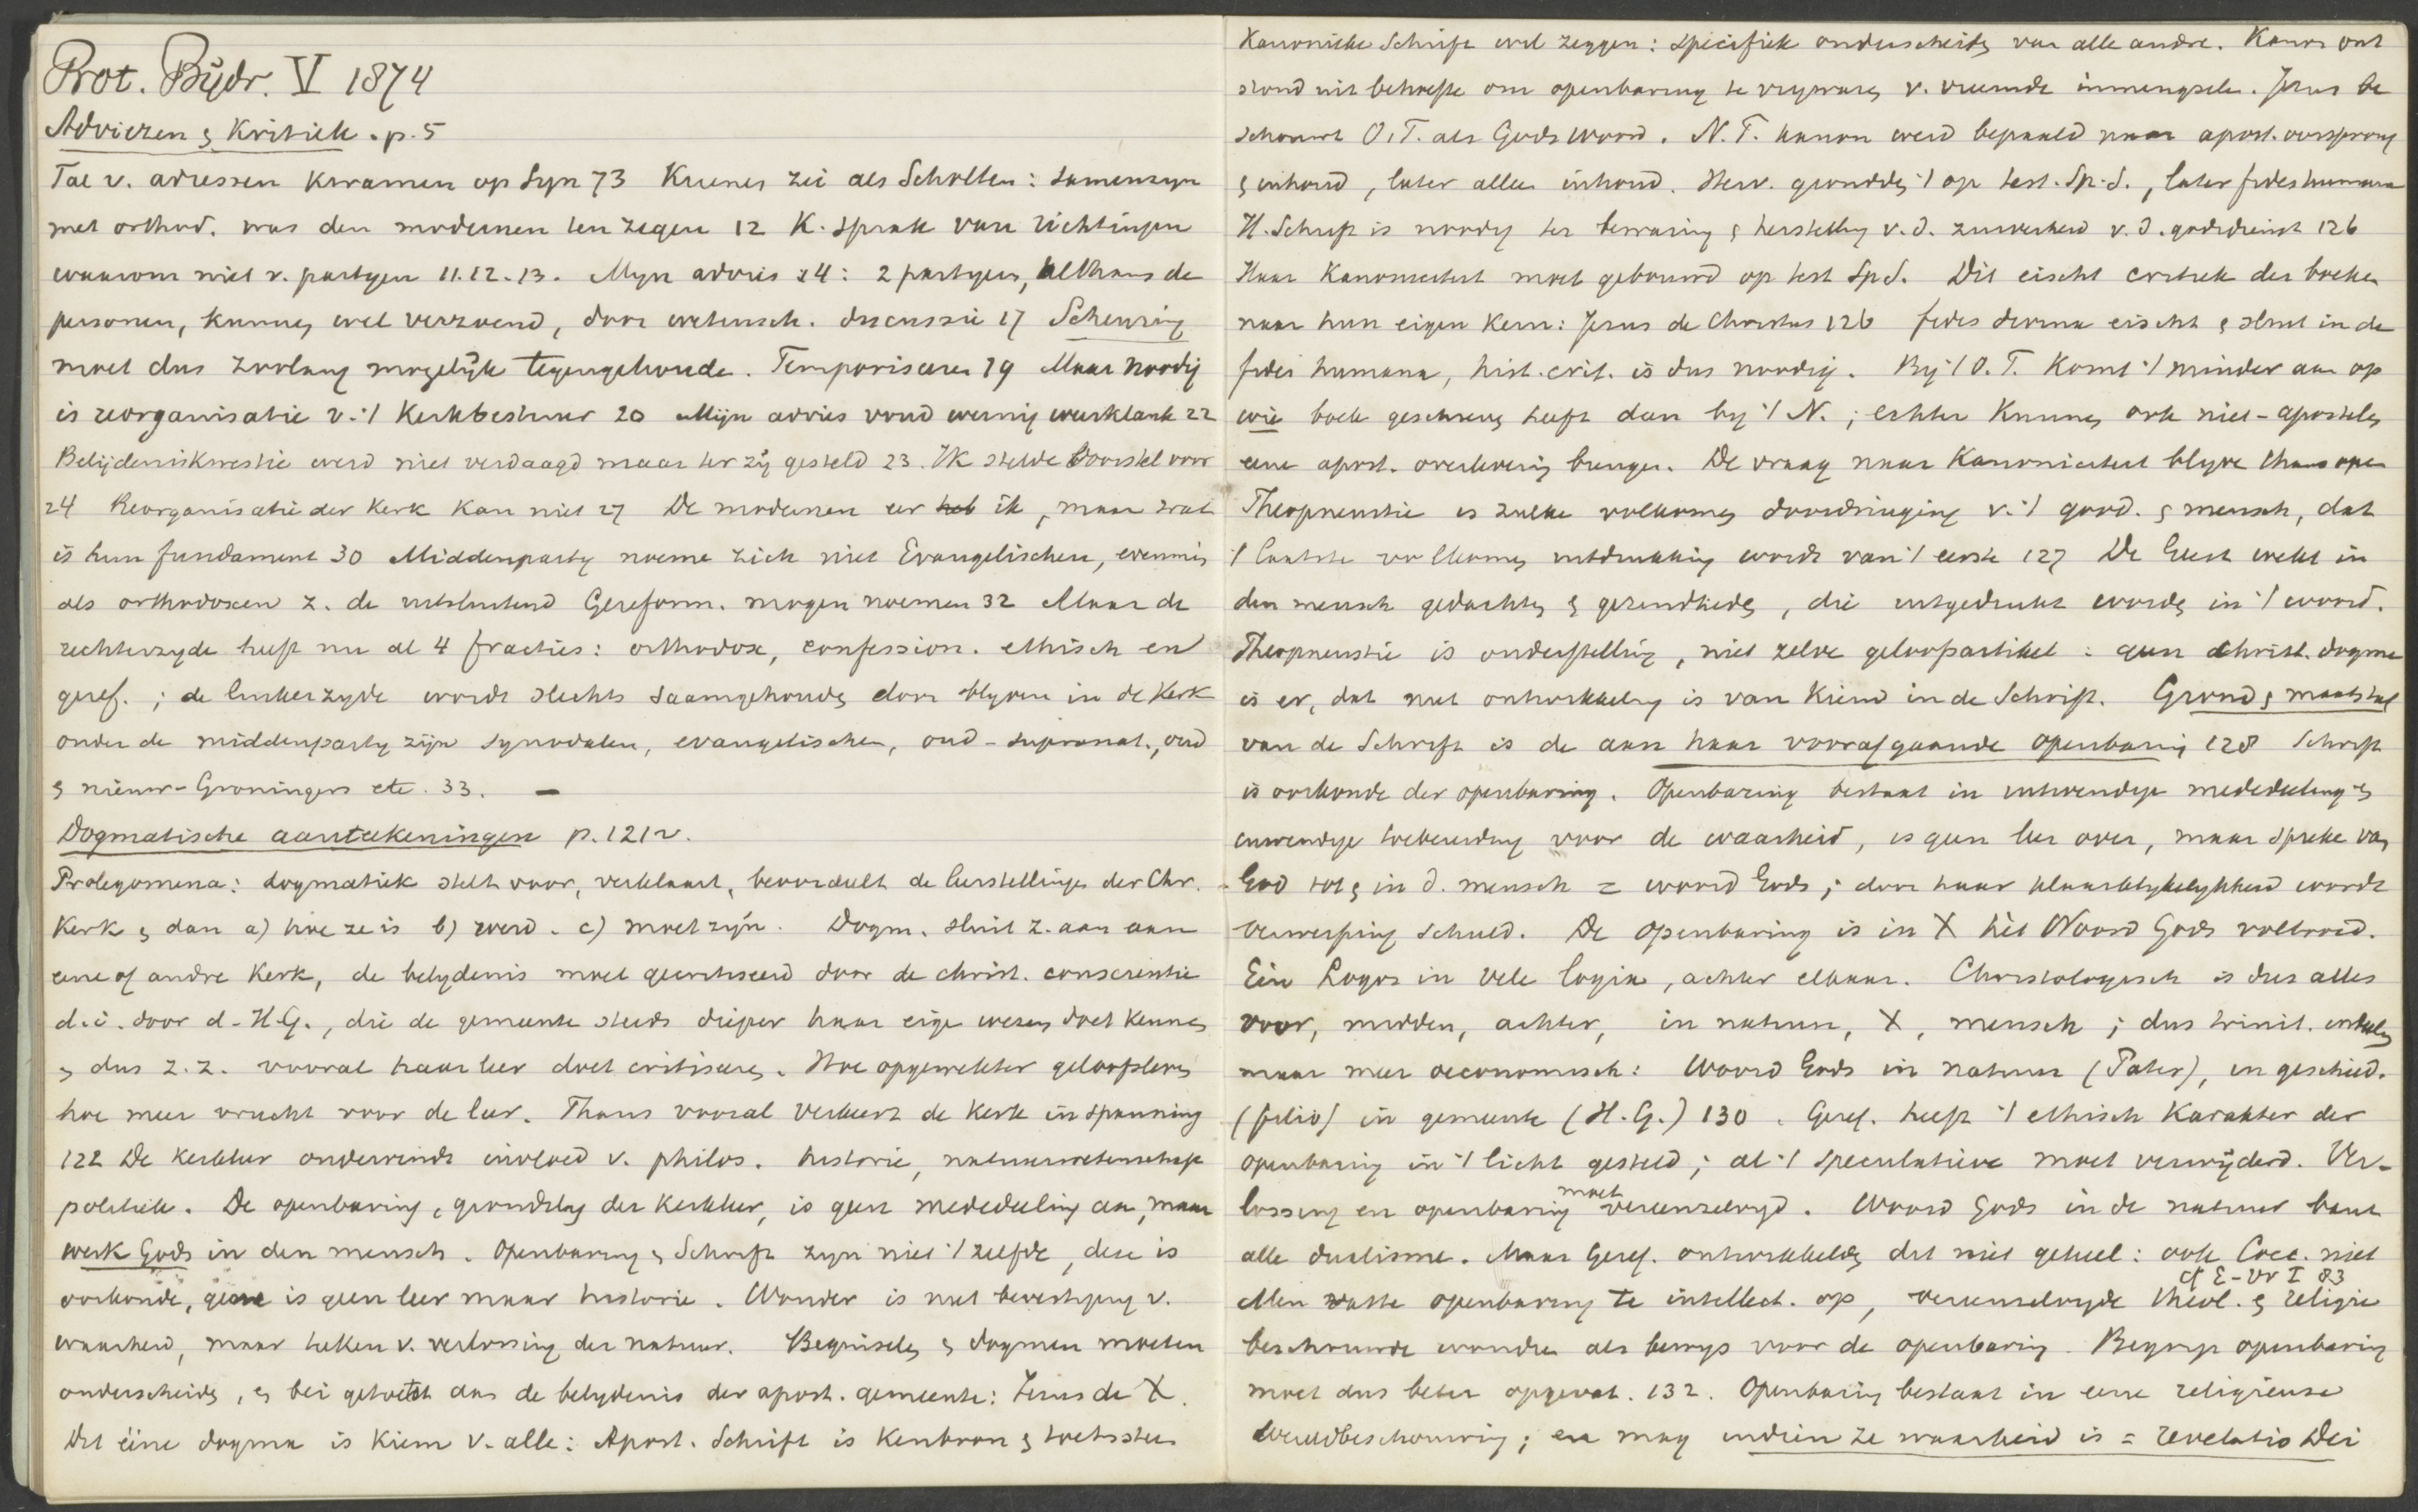 Prot. Bijdr. V 1874
Adviezen & Kritiek. p. 5
Tal v. adressen kwamen op Syn 73 Kuenen zei als Scholten: samenzijn
met orthod. was den modernen ten zegen 12 K. sprak van richtingen
waarom niet v. partijen 11.12.13. Mijn advies 14: 2 partijen, althans de
personen, kunnen wel verzoend, door wetensch. discussie 17 Scheuring
moet dus zoolang mogelijk tegengehouden. Temporiseeren 19 Maar noodig
is reorganisatie v. 't Kerkbestuur 20 Mijn advies vond weinig weerklank 22
Belijdeniskwestie werd niet verdaagd maar ter zij gesteld 23. Ik stelde voorstel voor
24 Reorganisatie der Kerk kan niet 27 De modernen eer ik, maar wat
is hun fundament 30 Middenpartij noeme zich niet Evangelischen, evenmin
als orthodoxen z. de uitsluitend Gereform. mogen noemen 32 Maar de
rechterzijde heeft nu al 4 fracties: orthodox, confession. ethisch en
geref.; de linkerzijde wordt slechts saamgehouden door blijven in de Kerk
onder de middenpartij zijn synodalen, evangelischen, oud-supranat., oud
& nieuw-Groningers etc. 33. —
Dogmatische aanteekeningen p. 121v.
Prolegomena: dogmatiek stelt voor, verklaart, beoordeelt de leerstellingen der Chr.
Kerk & dan a) hoe ze is b) werd. c) moet zijn. Dogm. sluit z. aan aan
eene of andre Kerk, de belijdenis moet gecritiseerd door de christ. conscientie
d.i. door d. H.G., die de gemeente steeds dieper haar eigen wezen doet kennen
& dus z.z. vooral haar leer doet critiseren. Hoe opgewekter geloofsleven
hoe meer vrucht voor de leer. Thans vooral verkeert de Kerk in spanning
122 De kerkleer ondervindt invloed v. philos. historie, natuurwetenschap
politiek. De openbaring, grondslag der kerkleer, is geen mededeeling aan, maar
werk Gods in den mensch. Openbaring & Schrift zijn niet 't zelfde, deze is
oorkonde, gene is geen leer maar historie. Wonder is niet bevestiging v.
waarheid, maar teeken v. verlossing der natuur. Beginselen & dogmen moeten
onderscheiden, & bei getoetst aan de belijdenis der apost. gemeente: Jezus de X.
Dit eéne dogma is kiem v. alle: Apost. Schrift is kenbron & toetssteen
Kanonieke Schrift wil zeggen: specifiek onderscheiden van alle andre. Kanon ont
stond uit behoefte om openbaring te vrijwaren v. vreemde inmengselen. Jezus be
schouwt O.T. als Gods woord. N.T. kanon werd bepaald naar apost. oorsprong
& inhoud, later alleen inhoud. Herv. grondden 't op test. Sp.S., later fides humana
H. Schrift is noodig ter bewaring & herstelling v.d. zuiverheid v.d. godsdienst 126
Haar Kanoniciteit moet gebouwd op test Sp S. Dit eischt critiek der boeken
naar hun eigen kern: Jezus de Christus 126 fides divina eischt & sluit in de
fides humana, hist. crit. is dus noodig. Bij 't O.T. komt 't minder aan op
wie boek geschreven heeft dan bij 't N.; echter kunnen ook niet-apostelen
eene apost. overlevering brengen. De vraag naar Kanoniciteit blijve thans open
Theopneustie is zulke volkomen doordringing v. 't godd. & mensch, dat
't laatste volkomen uitdrukking wordt van 't eerste 127 De Geest wekt in
den mensch gedachten & gezindheden, die uitgedrukt worden in 't woord.
Theopneustie is onderstelling, niet zelve geloofsartikel: geen christ. dogme
is er, dat niet ontwikkeling is van kiem in de Schrift. Grond & maatstaf
van de Schrift is de aan haar voorafgaande openbaring 128 Schrift
is oorkonde der openbaring. Openbaring bestaat in uitwendige mededeeling &
inwendige toebereiding voor de waarheid, is geen leer over, maar spreken van
God tot & in d. mensch = woord Gods; door haar klaarblijkelijkheid wordt
verwerping schuld. De openbaring is in X hèt Woord Gods voltooid.
Eén Logos in vele logia, achter elkaar. Christologisch is dus alles
voor, midden, achter, in natuur, X, mensch; dus trinit.
maar meer oeconomisch: Woord Gods in natuur (Pater), in geschied.
(filio) in gemeente (H.G.) 130. Geref. heeft 't ethisch karakter der
openbaring in 't licht gesteld; al 't speculatieve moet verwijderd. Ver-
lossing en openbaring moet vereenzelvigd. Woord Gods in de natuur bant
alle dualisme. Maar Geref. ontwikkelden dit niet geheel: ook Cocc. niet
cf E-Vr I 83
Men vatte openbaring te intellect. op, vereenzelvigde theol. & religie
beschouwde wonder als bewijs voor de openbaring. Begrip openbaring
moet dus beter opgevat. 132. Openbaring bestaat in eene religieuse
wereldbeschouwing; en mag indien ze waarheid is = revelatio Dei